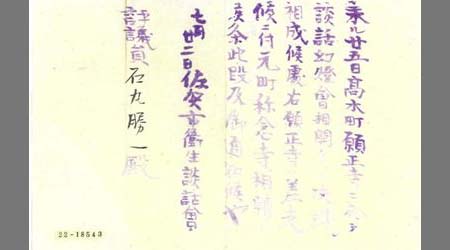 来ル廿五日高木町願正寺ニ於テ
談話幻燈會相開
相成候處右願正寺差支
候ニ付元町称念寺相頼
候条此段及御通知候也
七月廿二日佐賀市衛生談話會
評議員 石丸勝一殿
22-18543